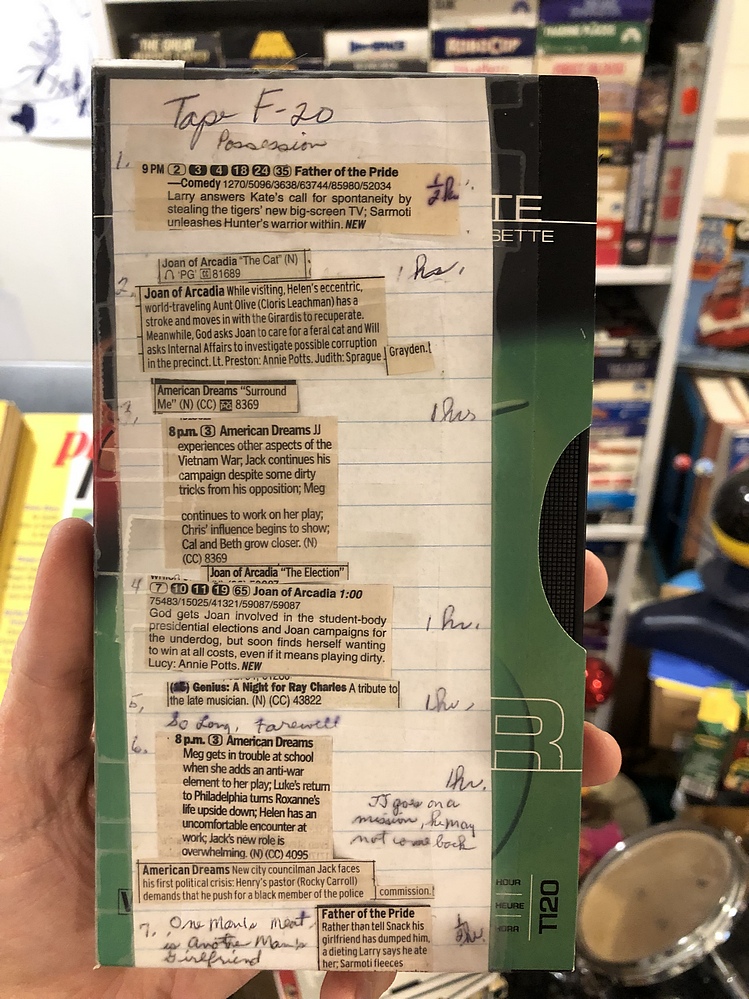 THE GREAT
INNERSPACE
ROBOCOP
Tape F-20
Possession
1.
9 PM 2 3 4 18 24 35 Father of the Pride
—Comedy 1270/5096/3638/63744/85980/52034
Larry answers Kate's call for spontaneity by
stealing the tigers' new big-screen TV; Sarmoti
unleashes Hunter's warrior within. NEW
1/2 hr.
Joan of Arcadia "The Cat" (N)
'PG' CC 81689
1 hr.
2.
Joan of Arcadia While visiting, Helen's eccentric,
world-traveling Aunt Olive (Cloris Leachman) has a
stroke and moves in with the Girardis to recuperate.
Meanwhile, God asks Joan to care for a feral cat and Will
asks Internal Affairs to investigate possible corruption
in the precinct. Lt. Preston: Annie Potts. Judith: Sprague
Grayden.
American Dreams "Surround
Me" (N) (CC) 8369
3.
1 hr
8 p.m. 3 American Dreams JJ
experiences other aspects of the
Vietnam War; Jack continues his
campaign despite some dirty
tricks from his opposition; Meg
continues to work on her play;
Chris' influence begins to show;
Cal and Beth grow closer. (N)
(CC) 8369
Joan of Arcadia "The Election"
4
7 10 11 19 65 Joan of Arcadia 1:00
75483/15025/41321/59087/59087
God gets Joan involved in the student-body
presidential elections and Joan campaigns for
the underdog, but soon finds herself wanting
to win at all costs, even if it means playing dirty.
Lucy: Annie Potts. NEW
1 hr.
5.
Genius: A Night for Ray Charles A tribute to
the late musician. (N) (CC) 43822
1 hr.
So Long, Farewell
6.
8 p.m. 3 American Dreams
Meg gets in trouble at school
when she adds an anti-war
element to her play; Luke's return
to Philadelphia turns Roxanne's
life upside down; Helen has an
uncomfortable encounter at
work; Jack's new role is
overwhelming. (N) (CC) 4095
1 hr.
JJ goes on a
mission, he may
not come back
American Dreams New city councilman Jack faces
his first political crisis: Henry's pastor (Rocky Carroll)
demands that he push for a black member of the police
commission.
7. One Man's Meat
is Another Man's
Girlfriend
Father of the Pride
Rather than tell Snack his
girlfriend has dumped him,
a dieting Larry says he ate
her; Sarmoti fleeces
1/2 hr.
TE
SETTE
R
HOUR
HEURE
HORA
T120